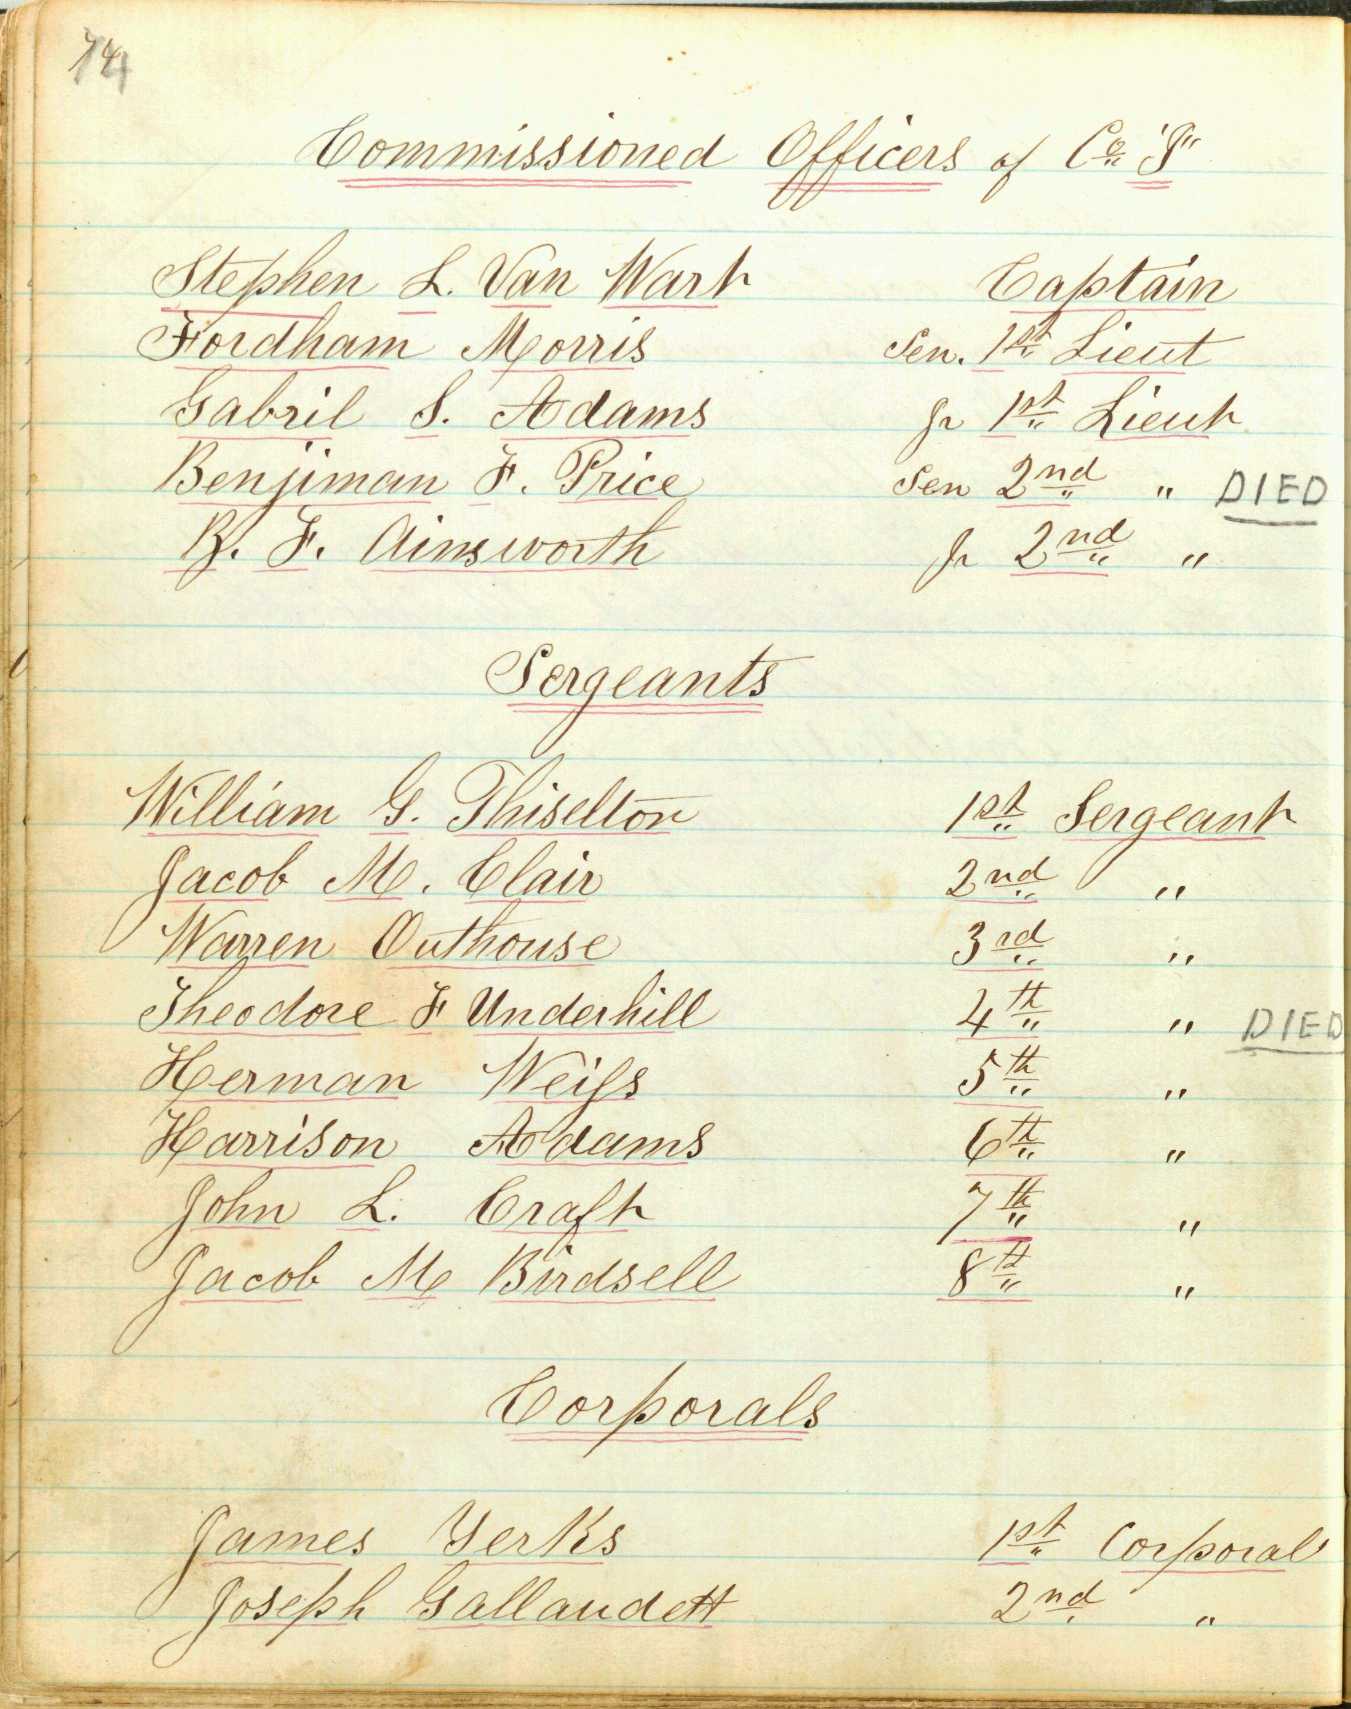 74
Commissioned Officers of Co "F"
Stephen L. Van Wart Captain
Fordham Morris Sen. 1st Lieut
Gabril S. Adams Jr 1st Lieut
Benjiman F. Price Sen 2nd " DIED
B. F. Ainsworth Jr 2nd "
Sergeants
William G. Thiselton 1st Sergeant
Jacob M. Clair 2nd "
Warren Outhouse 3rd "
Theodore F Underhill 4th " DIED
Herman Weiss 5th "
Harrison Adams 6th "
John L. Craft 7th "
Jacob M Birdsell 8th "
Corporals
James Yerks 1st Corporal
Joseph Gallaudett 2nd "